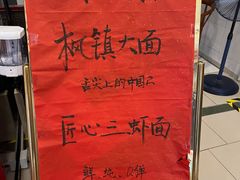 枫镇大面
舌尖上的中国二
匠心三虾面